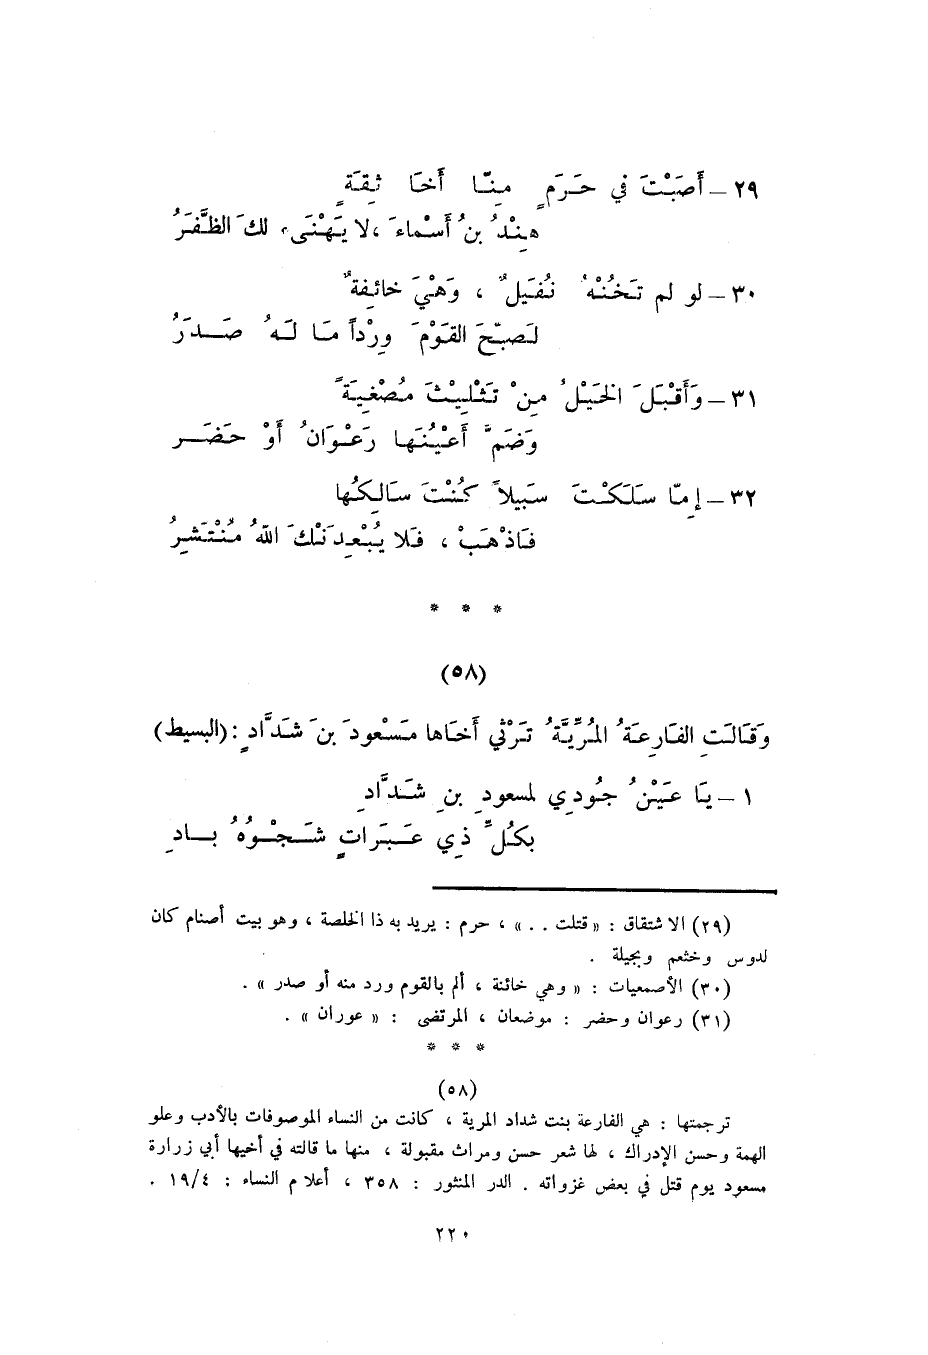 ٢٩ – أَصَبْتَ في حَرَمٍ مِنّا أَخَا ثِقَةٍ
هِنْدُ بنُ أَسْماءَ ، لا يَهْنَىء لكَ الظَّفَرُ
٣٠ – لو لم تَخُنْهُ نُفَيلٌ ، وَهْيَ خائِفةٌ
لَصبّحَ القَوْمَ وِرْداً مَا لَهُ صَدَرُ
٣١ – وَأَقْبَلَ الخَيْلُ مِنْ تَثْلِيْثَ مُصْغِيَةً
وَضَمَّ أَعْيُنَها رَعْوَانُ أَوْ حَضَر
٣٢ – إمّا سَلَكْتَ سَبيلاً كُنْتَ سَالِكُها
فَاذْهَبْ ، فَلا يُبْعِدَنْكَ اللهُ مُنْتَشِرُ
* * *
(٥٨)
وَقَالَتِ الفَارِعَةُ المُرِّيَّةُ تَرْثي أَخَاها مَسْعُودَ بنَ شَدَّادٍ : (البسيط)
١ – يَا عَيْنُ جُودِي لمسعودِ بنِ شَدَّادِ
بكُلِّ ذِي عَبَرَاتٍ شَجْوُهُ بادِ
(٢٩) الاشتقاق : « قتلت . . » ، حرم : يريد به ذا الخلصة ، وهو بيت أصنام كان
لدوس وخثعم وبجيلة .
(٣٠) الأصمعيات : « وهي خائنة ، ألم بالقوم ورد منه أو صدر » .
(٣١) رعوان وحضر : موضعان ، المرتضى : « عوران » .
* * *
(٥٨)
ترجمتها : هي الفارعة بنت شداد المرية ، كانت من النساء الموصوفات بالأدب وعلو
الهمة وحسن الإدراك ، لها شعر حسن ومراث مقبولة ، منها ما قالته في أخيها أبي زرارة
مسعود يوم قتل في بعض غزواته . الدر المنثور : ٣٥٨ ، أعلام النساء : ١٩/٤ .
٢٢٠